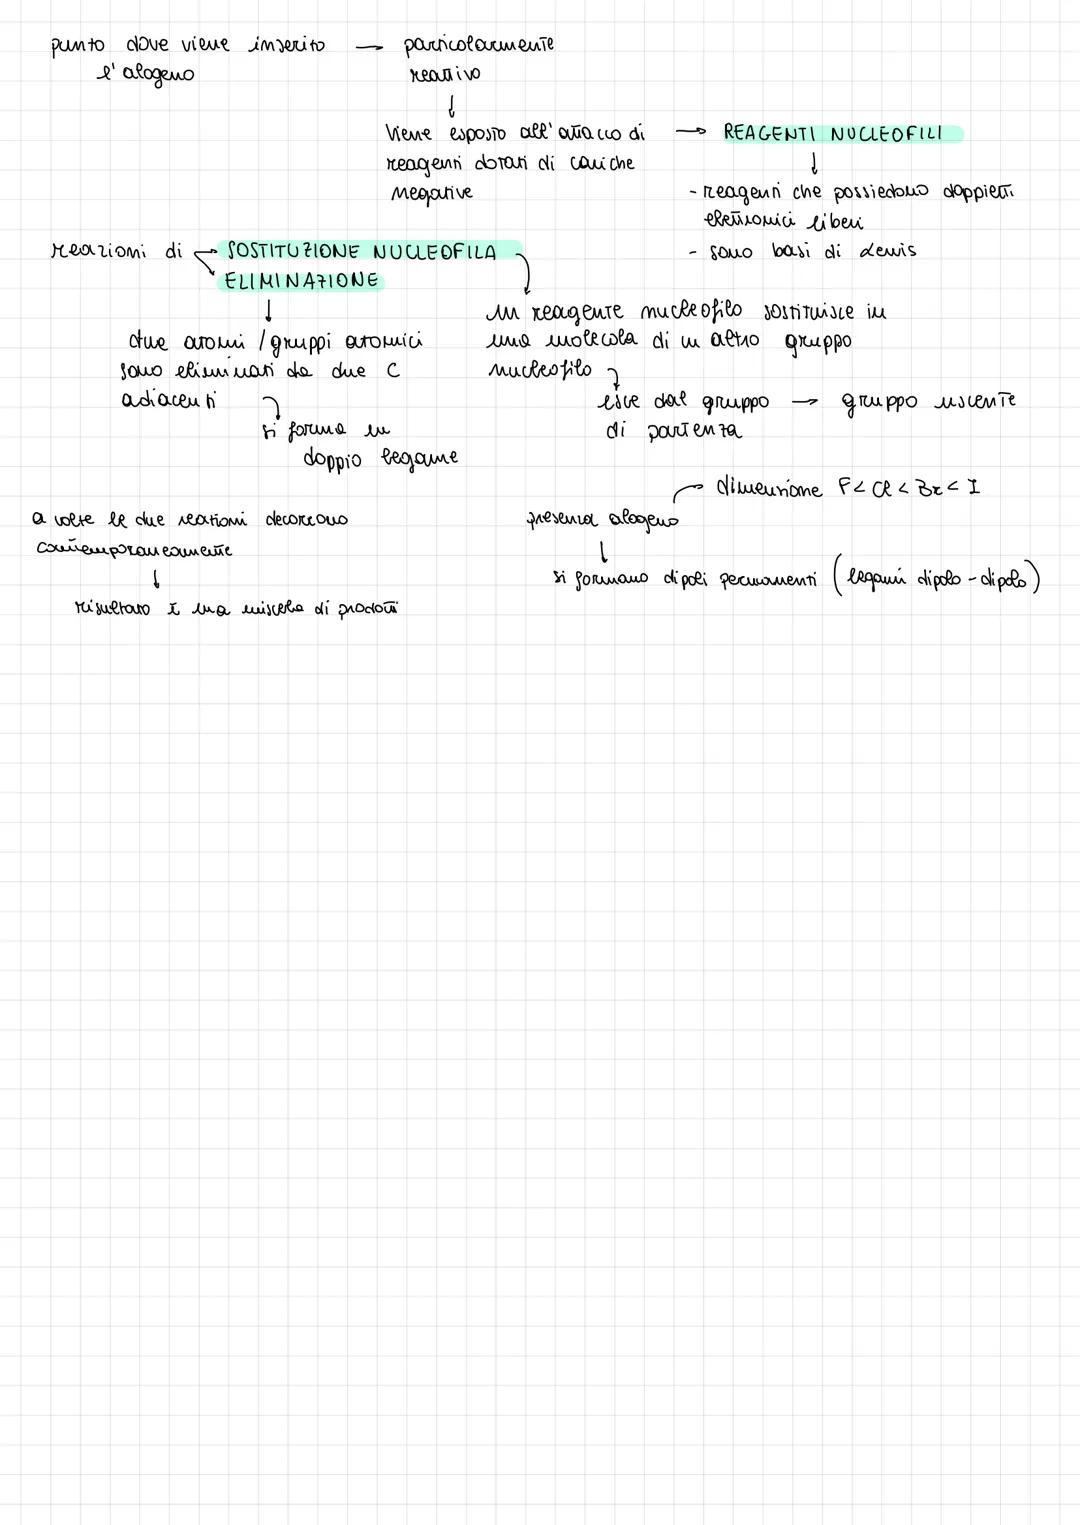 punto dove viene inserito → particolarmente
l'alogeno reattivo
↓
Viene esposto all'attacco di → REAGENTI NUCLEOFILI
reagenti dotati di cariche ↓
negative - reagenti che possiedono doppietti
elettronici liberi
- sono basi di Lewis
reazioni di → SOSTITUZIONE NUCLEOFILA
→ ELIMINAZIONE
↓
due atomi / gruppi atomici
sono eliminati da due C
adiacenti
si forma un
doppio legame
un reagente nucleofilo sostituisce in
una molecola di un altro gruppo
nucleofilo
esce dal gruppo → gruppo uscente
di partenza
a volte le due reazioni decorrono
contemporaneamente
↓
risultato è una miscela di prodotti
→ dimensione F < Cl < Br < I
presenza alogeno
↓
si formano dipoli permanenti (legami dipolo-dipolo)